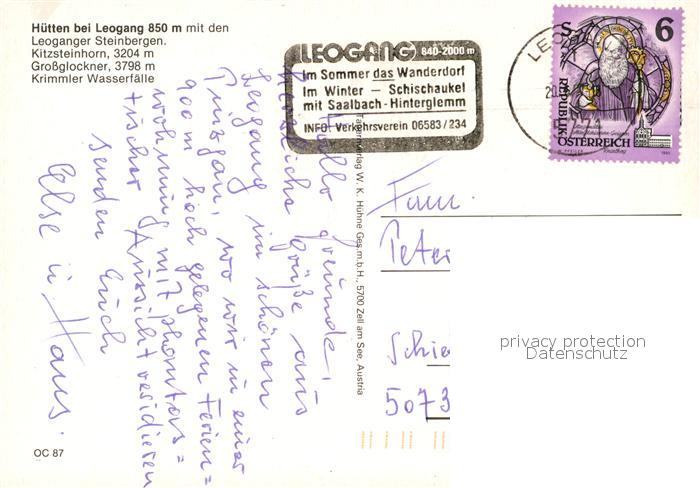 Hütten bei Leogang 850 m mit den
Leoganger Steinbergen.
Kitzsteinhorn, 3204 m
Großglockner, 3798 m
Krimmler Wasserfälle
LEOGANG 840-2000 m
Im Sommer das Wanderdorf
Im Winter – Schischaukel
mit Saalbach-Hinterglemm
INFO: Verkehrsverein 06583/234
LEO
20.
S 6
REPUBLIK
ÖSTERREICH
Hallo Freunde,
Herzliche Grüße aus
Leogang im schönen
Pinzgau, wo wir in einer
900 m hoch gelegenen Ferien=
wohnung mit phantas=
tischer Aussicht residieren
senden Euch
Else u. Hans.
Verlag W. K. Hühne Ges.m.b.H., 5700 Zell am See, Austria
Fam.
Peter
Schie
5073
privacy protection
Datenschutz
OC 87